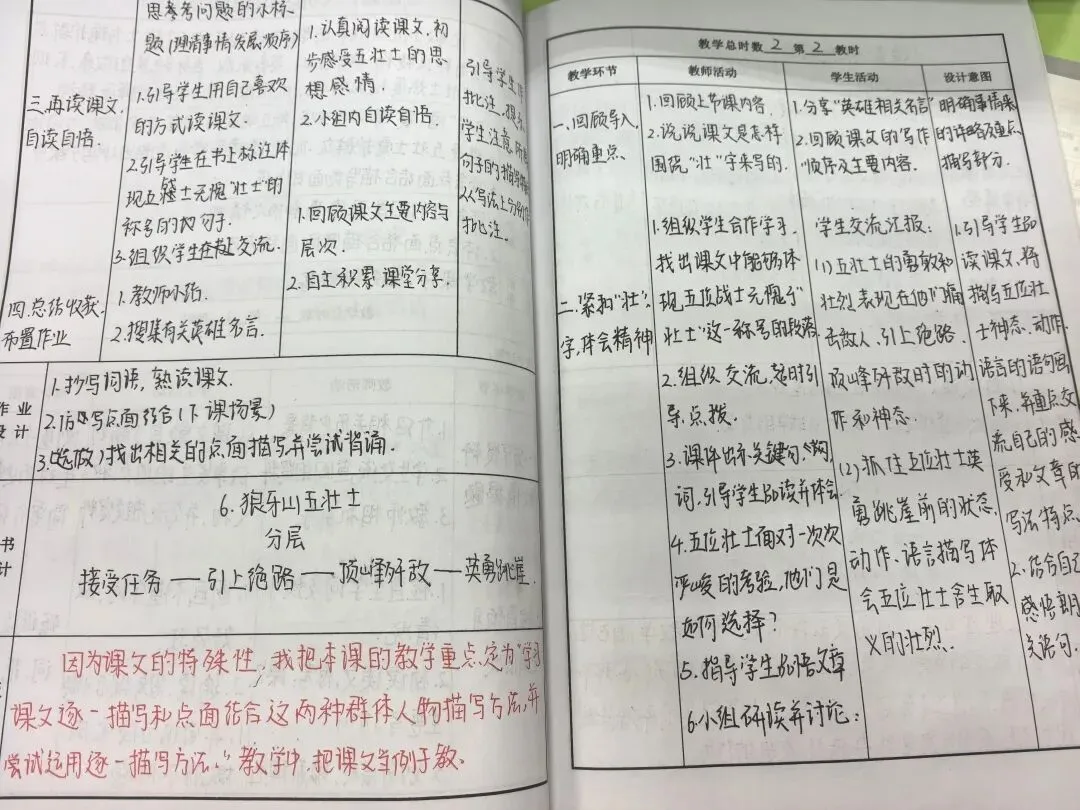 思考问题的小标
题(理清事情发展顺序)
三.再读课文,
自读自悟.
1.引导学生用自己喜欢
的方式读课文.
2.引导学生在书上标注体
现五壮士无愧"壮士"的
称号的句子.
3.组织学生在交流.
1.认真阅读课文,初
步感受五壮士的思
想感情.
2.小组内自读自悟.
引导学生作
批注,提示
学生注意,所
句子的描写
从写法上分
批注.
四.总结收获,
布置作业
1.教师小结.
2.搜集有关英雄名言.
1.回顾课文主要内容与
层次.
2.自主积累,课堂分享.
作业
设计
1.抄写词语,熟读课文.
2.仿写点面结合(下课场景)
3.(选做)找出相关的点面描写并尝试背诵.
书
计
6.狼牙山五壮士
分层
接受任务——引上绝路——顶峰歼敌——英勇跳崖.
因为课文的特殊性,我把本课的教学重点定为"学习
课文逐一描写和点面结合这两种群体人物描写方法,并
尝试运用逐一描写方法."教学中,把课文当例子教.
教学总时数 2 第 2 教时
教学环节
教师活动
学生活动
设计意图
一.回顾导入,
明确重点.
1.回顾上节课内容.
2.说说课文是怎样
围绕"壮"字来写的.
1.分享"英雄相关名言"
2.回顾课文的写作
顺序及主要内容.
明确事情来
的详略及重点
描写部分.
二.紧扣"壮"
字,体会精神
1.组织学生合作学习.
找出课文中能够体
现五位战士无愧于"
壮士"这一称号的段落
2.组织交流,适时引
导.点拨.
3.课件出示关键句、
词.引导学生品读并体会.
4.五位壮士面对一次次
严峻的考验,他们是
如何选择?
5.指导学生品悟文章
6.小组研读并讨论:
学生交流汇报:
(1)五壮士的勇敢和
壮烈表现在他们痛
击敌人、引上绝路、
顶峰歼敌时的动
作和神态.
(2)抓住五位壮士英
勇跳崖前的状态,
动作、语言描写体
会五位壮士舍生取
义的壮烈.
1.引导学生品
读课文,将
描写五位壮
士神态、动作、
语言的语句画
下来,并重点交
流自己的感
受和文章的
写法特点.
2.结合自己
感悟朗
关语句.